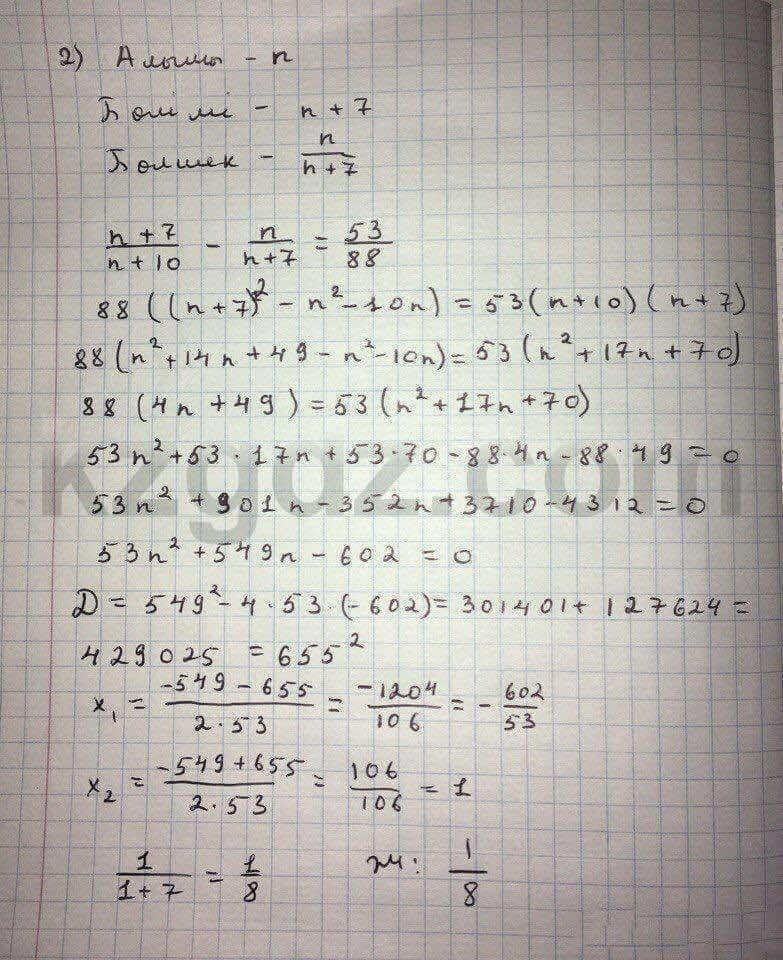 2) Алымы - n
Бөлімі - n + 7
Бөлшек - n/(n+7)
(n+7)/(n+10) - n/(n+7) = 53/88
88((n+7)² - n² - 10n) = 53(n+10)(n+7)
88(n² + 14n + 49 - n² - 10n) = 53(n² + 17n + 70)
88(4n + 49) = 53(n² + 17n + 70)
53n² + 53·17n + 53·70 - 88·4n - 88·49 = 0
53n² + 901n - 352n + 3710 - 4312 = 0
53n² + 549n - 602 = 0
D = 549² - 4·53·(-602) = 301401 + 127624 =
429025 = 655²
x₁ = (-549 - 655)/(2·53) = -1204/106 = -602/53
x₂ = (-549 + 655)/(2·53) = 106/106 = 1
1/(1+7) = 1/8 ж: 1/8
kzgdz.com